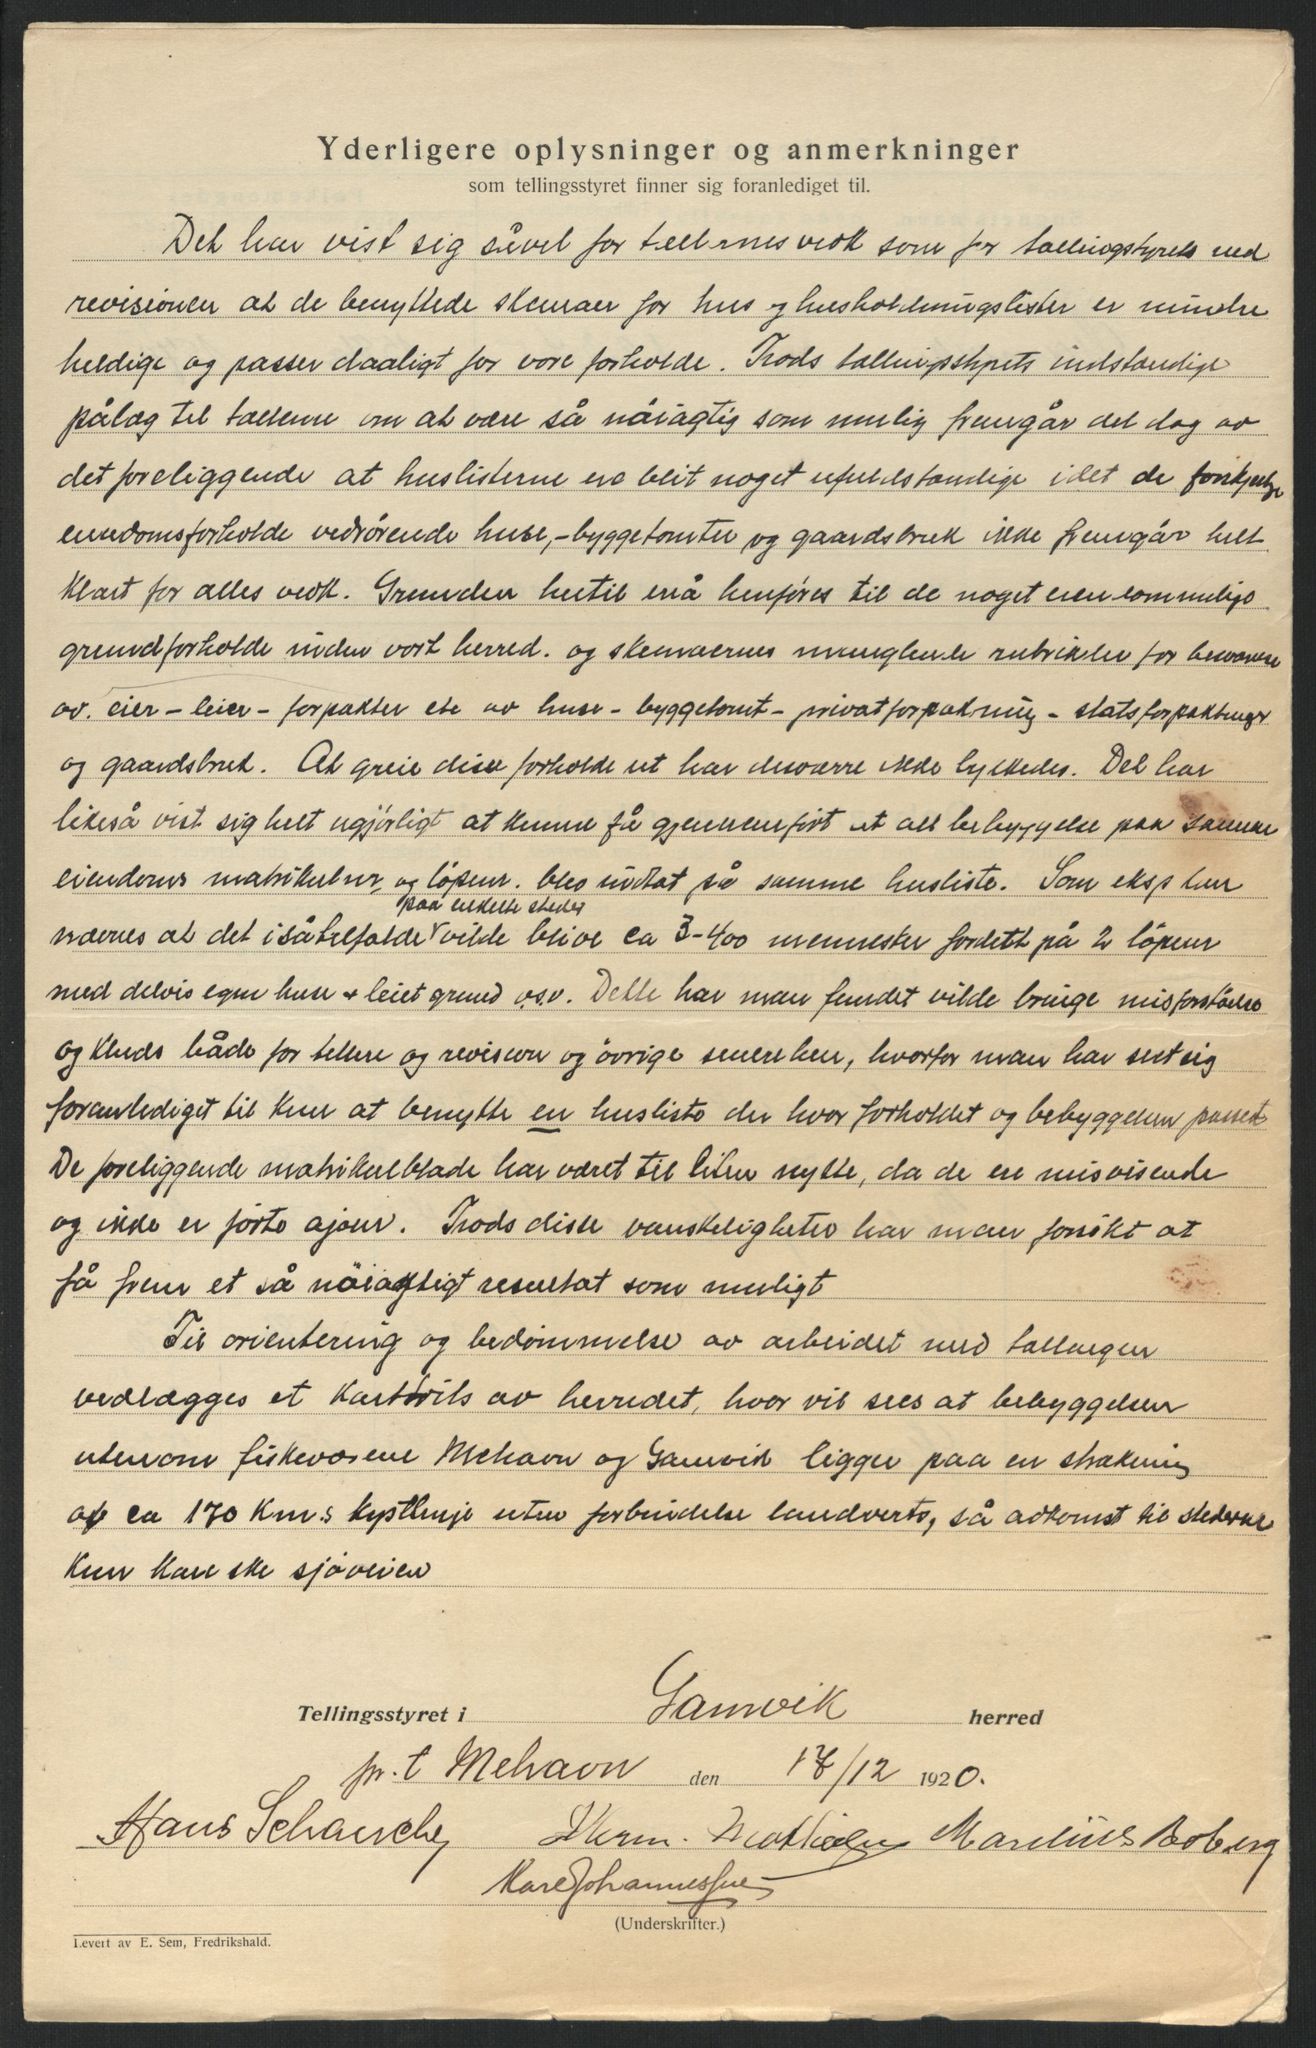 Yderligere oplysninger og anmerkninger
som tellingsstyret finner sig foranlediget til.
Det har vist sig såvel for tellernes vedk som for tællingstyrets ved
revisionen at de benyttede skemaer for hus og husholdningslister er mindre
heldige og passer daaligt for vore forholde. Trods tællingsstyrets indstændige
pålæg til tællerne om at være så nöiagtig som mulig fremgår det dog av
det foreliggende at huslisterne ere blit noget ufuldstændige idet de forskjellige
eiendomsforholde vedrörende huse,-byggetomter og gaardsbruk ikke fremgår helt
klart for alles vedk. Grunden hertil må henføres til de noget
grundforholde inden vort herred. og skemaernes manglende rubrikker for besvarelse
av. eier - leier - forpakter etc av huse - byggetomt - privatforpaktning - statsforpaktninger
og gaardsbruk. At greie disse forholde ut har desværre ikke lykkedes. Det har
likeså vist sig helt ugjörligt at kunne få gjennemfört at all bebyggelse paa samme
eiendoms matrikulnr og löpenr. blev indtat på samme husliste. Som eksp kan
paa enkelte steder
nævnes at det isåtilfælde vilde blive ca 3-400 mennesker fordelt på 2 löpenr
med delvis egne huse + leiet grund o.s.v. Dette har man fundet vilde bringe misforståelse
og kluds både for tellere og revision og övrige senerehen, hvorfor man har set sig
foranlediget til kun at benytte en husliste der hvor forholdet og bebyggelsen passet
De foreliggende matrikulblade har været til liten nytte, da de ere misvisende
og ikke er förte ajour. Trods disse vanskeligheter har man forsökt at
få frem et så nöiagtigt resultat som muligt
Til orientering og bedömmelse av arbeidet med tællingen
vedlægges et kartrids av herredet, hvor vil sees at bebyggelsen
utenom fiskeværene Mehavn og Gamvik ligger paa en strækning
af ca 170 Km:s kystlinje uten forbindelse landverts, så adkomst til stederne
kun kan ske sjöveien
Tellingsstyret i Gamvik herred
pr. t Mehavn den 17/12 1920.
Hans Schanche Herm. Mathisen Marelius Boberg
Kare Johannessen
(Underskrifter.)
Levert av E. Sem, Fredrikshald.